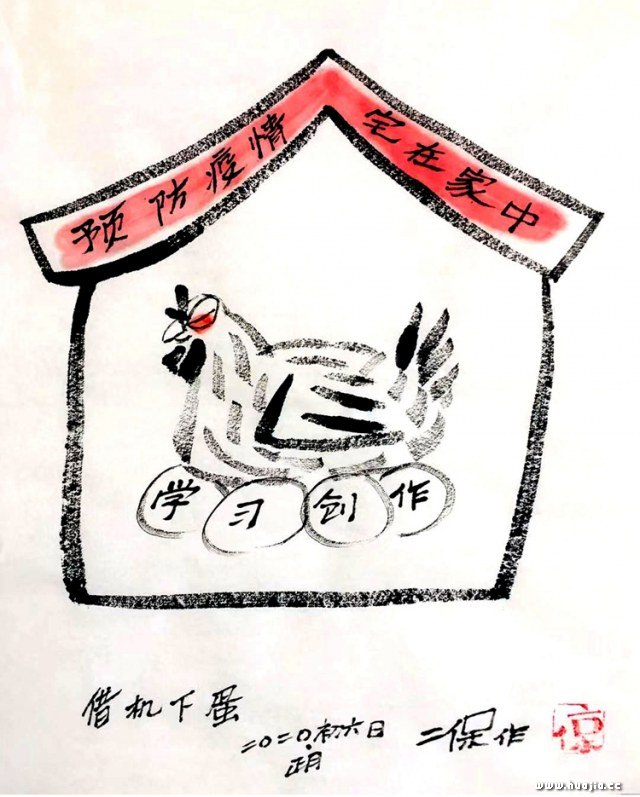 预防疫情 宅在家中
学习创作
借机下蛋
二〇二〇初六日
正月
二保作
www.huajia.cc